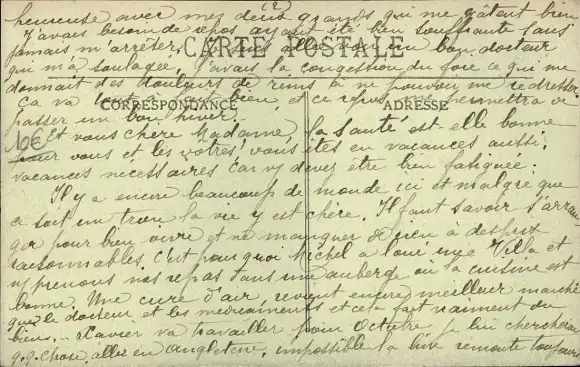 (2)
heureuse avec mes deux grands qui me gâtent bien
J'avais besoin de repos ayant été bien souffrante sans
jamais m'arrêter. Je suis allée à un bon docteur
CARTE POSTALE
qui m'a soulagée, j'avais la congestion du foie ce qui me
donnait des douleurs de reins à ne pouvoir me redresser.
Ça va bien et ce repos me permettra de
CORRESPONDANCE
ADRESSE
passer un bon hiver.
10€
Et vous chère Madame, la santé est-elle bonne
pour vous et les vôtres! vous êtes en vacances aussi,
vacances nécessaires car vs devez être bien fatiguée.
Il y a encore beaucoup de monde ici et malgré que
ce soit un trou la vie y est chère. Il faut savoir s'arran
ger pour bien vivre et ne manquer de rien à des prix
raisonnables. C'est pourquoi Michel a loué une Villa et
ns prenons nos repas dans une auberge où la cuisine est
bonne. Une cure d'air, revient encore meilleur marché
que le docteur et les médicaments et cela fait vraiment du
bien... Xavier va travailler pour Octobre, je lui chercherai
q.q. chose, aller en Angleterre, impossible la livre remonte toujours